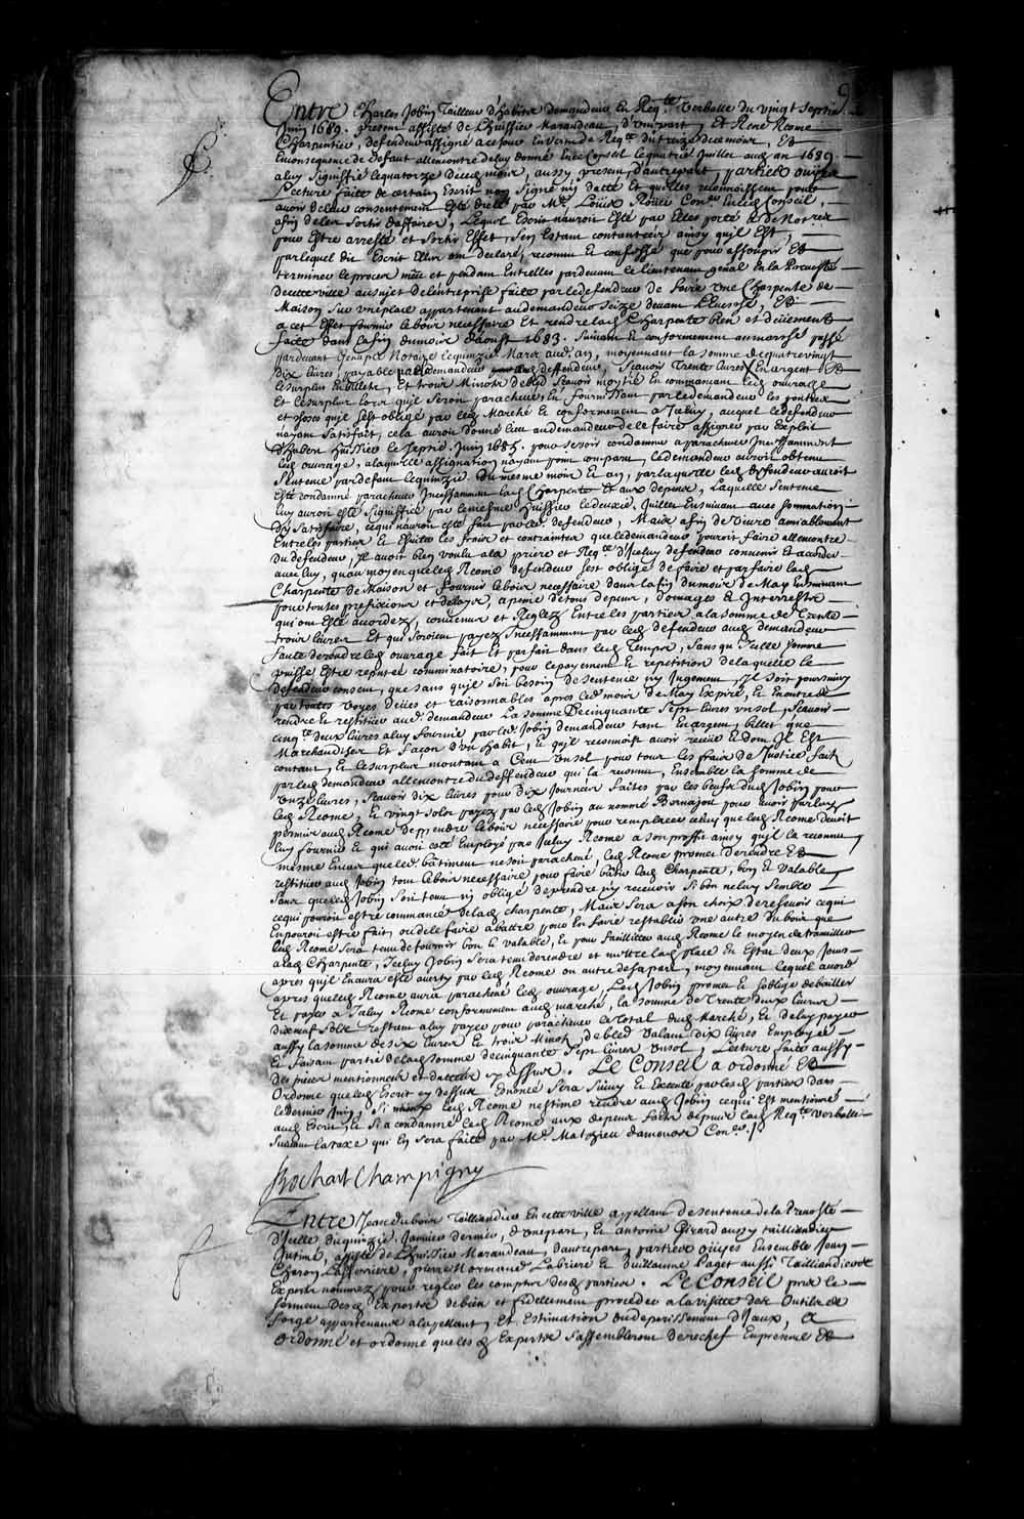 Entre Charles Jobin Tailleur d'habits demandeur En Reqte. verballe du vingt septie.
Juin 1689. present assisté de L'huissier Marandeau, d'une part, Et René Reome
Charpentier, deffendeur assigné a ce jour En vertu de Reqte. du treize dud. mois, Et
En consequence de Defaut allencontre de luy donné En ce Conseil le quatrie. Juillet aud. an 1689.
a luy signiffié le quatorze dud. mois, aussy present, d'autre part, parties ouyes
Lecture faite de certain Escrit non signé ny datté Et qu'elles reconnoissent pour
avoir de leur consentement Esté dressé par Me. Loüis Roüer Conser. En ce Conseil,
afin de les sortir d'affaires, Lequel Escrit n'auroit Esté par Elles porté a de Notaire
pour Estre arresté et sortir Effet, s'en Estant contentées ainsy qu'il Est,
par lequel dit Escrit Elles ont declaré, reconnu Et confessé que pour assoupir Et
terminer le procez mûe et pendant Entr'elles pardevant le lieutenant genal. En la Prevosté
de cette ville au sujet de l'entreprise faite par le defendeur de faire Une Charpente de
Maison sur une place appartenant au demandeur seize devant l'Eveché, Et
a cet Effet fournir le bois necessaire Et rendre lad. Charpente bien et deüement
faite dans la fin du mois d'aoust 1683. suivant Et conformement au marché passé
pardevant Genaple Notaire le quinzie. Mars aud. an, moyennant la somme de quatre vingt
dix livres, payable par le demandeur aud. deffendeur, Sçavoir Trente livres En argent Et
le surplus En billets, Et trois Minots de bled Sçavoir moytié En commançant led. ouvrage
Et le surplus lors qu'il seroit parachevé, En fournissant par le demandeur les poutres
et choses qu'il s'est obligé par led. Marché Et conformement a Iceluy, auquel le defendeur
n'ayant satisfait, cela auroit donné lieu au demandeur de le faire assigner par Exploit
d'hubert huissier le septie. Juin 1685. pour se voir condamner a parachever Incessamment
led. ouvrage, a laquelle assignation n'ayant point comparu, le demandeur auroit obtenu
Sentence par defaut le quinzie. du mesme mois Et an, par laquelle led. deffendeur auroit
Esté condamné parachever Incessamment lad. Charpente Et aux depens, Laquelle Sentence
luy auroit esté signiffiée par le mesme huissier le deuxie. Juillet Ensuivant avec sommation
d'y satisfaire, ce qui n'auroit esté fait par led. defendeur, Mais afin de vivre amiablement
Entre les parties Et Eviter les frais et contraintes que le demandeur pouroit faire allencontre
du defendeur, Il auroit bien voulu a la priere et Reqte. d'Iceluy defendeur convenir Et accorder
avec luy, qu'au moyen que led. Reome defendeur s'est obligé de faire et parfaire lad.
Charpente de Maison et fournir le bois necessaire dans la fin du mois de May Ensuivant
pour toutes prefixions et delays, a peine de tous depens, Domages Et Interrests
qui ont Esté accordez, convenus et Reglez Entre les parties a la somme de Trente
trois livres Et qui seroient payez Incessamment par led. defendeur aud. demandeur
faute de rendre led. ouvrage fait Et parfait dans led. temps, sans qu'Icelle somme
puisse Estre reputée comminatoire, pour le payement Et repetition de laquelle le
defendeur consent, que sans qu'il soit besoin de sentence ny Jugement, Il soit poursuivy
par toutes voyes deües et raisonnables apres led. mois de May Expiré, Et En outre de
rendre Et restituer aud. demandeur La somme De cinquante sept livres un sol, sçavoir
cinqte. deux livres a luy fournie par led. Jobin demandeur tant En argent, billet que
Marchandises Et façon d'un habit, Et qu'il reconnoist avoir receüe Et dont Il Est
content, Et le surplus montant a Cent un sol pour tous les frais de Justice faits
par led. demandeur allencontre du deffendeur qui l'a reconnu, Ensemble la somme de
Onze livres, Sçavoir dix livres pour dix Journées faites par les boeufs dud. Jobin pour
led. Reome, Et vingt sols payez par led. Jobin au nommé Bernajou pour avoir par luy
permis aud. Reome de prendre le bois necessaire pour remplacer celuy que led. Reome devoit
luy fournir Et qui avoit esté Employé par Iceluy Reome a son proffit ainsy qu'il l'a reconnu
mesme En cas que led. bâtiment ne soit parachevé, led. Reome promet de rendre Et
restituer aud. Jobin tout le bois necessaire pour faire bâtir lad. Charpente, bon Et valable
sans que led. Jobin soit tenu ny obligé de prendre ny recevoir si bon ne luy semble
ce qui pouroit estre commancé de lad. charpente, Mais sera a son choix de recevoir ce qui
En pouroit estre fait, ou de le faire abattre pour En faire restablir une autre du bois que
led. Reome sera tenu de fournir bon Et valable, Et pour faciliter aud. Reome le moyen de travailler
a lad. Charpente, Iceluy Jobin sera tenu de rendre et mettre lad. place En Estat deux Jours
apres qu'il En aura esté averty par led. Reome ou autre de sa part, moyennant lequel accord
apres que led. Reome aura parachevé led. ouvrage, Led. Jobin promet Et s'oblige de bailler
Et payer a Iceluy Reome conformement aud. marché, la somme de Trente deux livres
dixneuf sols restant a luy payer pour parachever le total dud. Marché, Et de luy payer
aussy la somme de six livres Et trois Minots de bled valant dix livres Employée
Et faisant partie de lad. somme de cinquante sept livres un sol, Lecture faite aussy
des pieces mentionnées et dattées cy dessus. Le Conseil a ordonné Et
Ordonne que led. Escrit cy dessus Enoncé sera suivy Et Executé par lesd. parties dans
le dernier Juin, Si mieux led. Reome n'estime rendre aud. Jobin ce qui Est mentionné
aud. Escrit, Et l'a condamné led. Reome aux depens faits depuis lad. Reqte. verballe
suivant la taxe qui En sera faite par Me. Mathieu damours Conser. /.
Bochart Champigny
Entre Jean dubois Taillandier En cette ville appellant de sentence de la Prevosté
d'Icelle du quinzie. Janvier dernier, d'une part, Et antoine Girard aussy taillandier
Intimé, assisté de L'huissier Marandeau, d'autre part, parties ouyes Ensemble Jean
Cheron Lafferriere, pierre Normand Labriere Et Guillaume Paget aussi Taillandiers
Experts nommez pour regler les comptes desd. parties. Le Conseil pris le
serment desd. Experts de bien et fidellement proceder a la visitte des Outils de
forge appartenants a l'apellant, Et Estimation du deperissement d'Iceux, a
ordonné et ordonne que lesd. Experts s'assembleront derechef En presence des